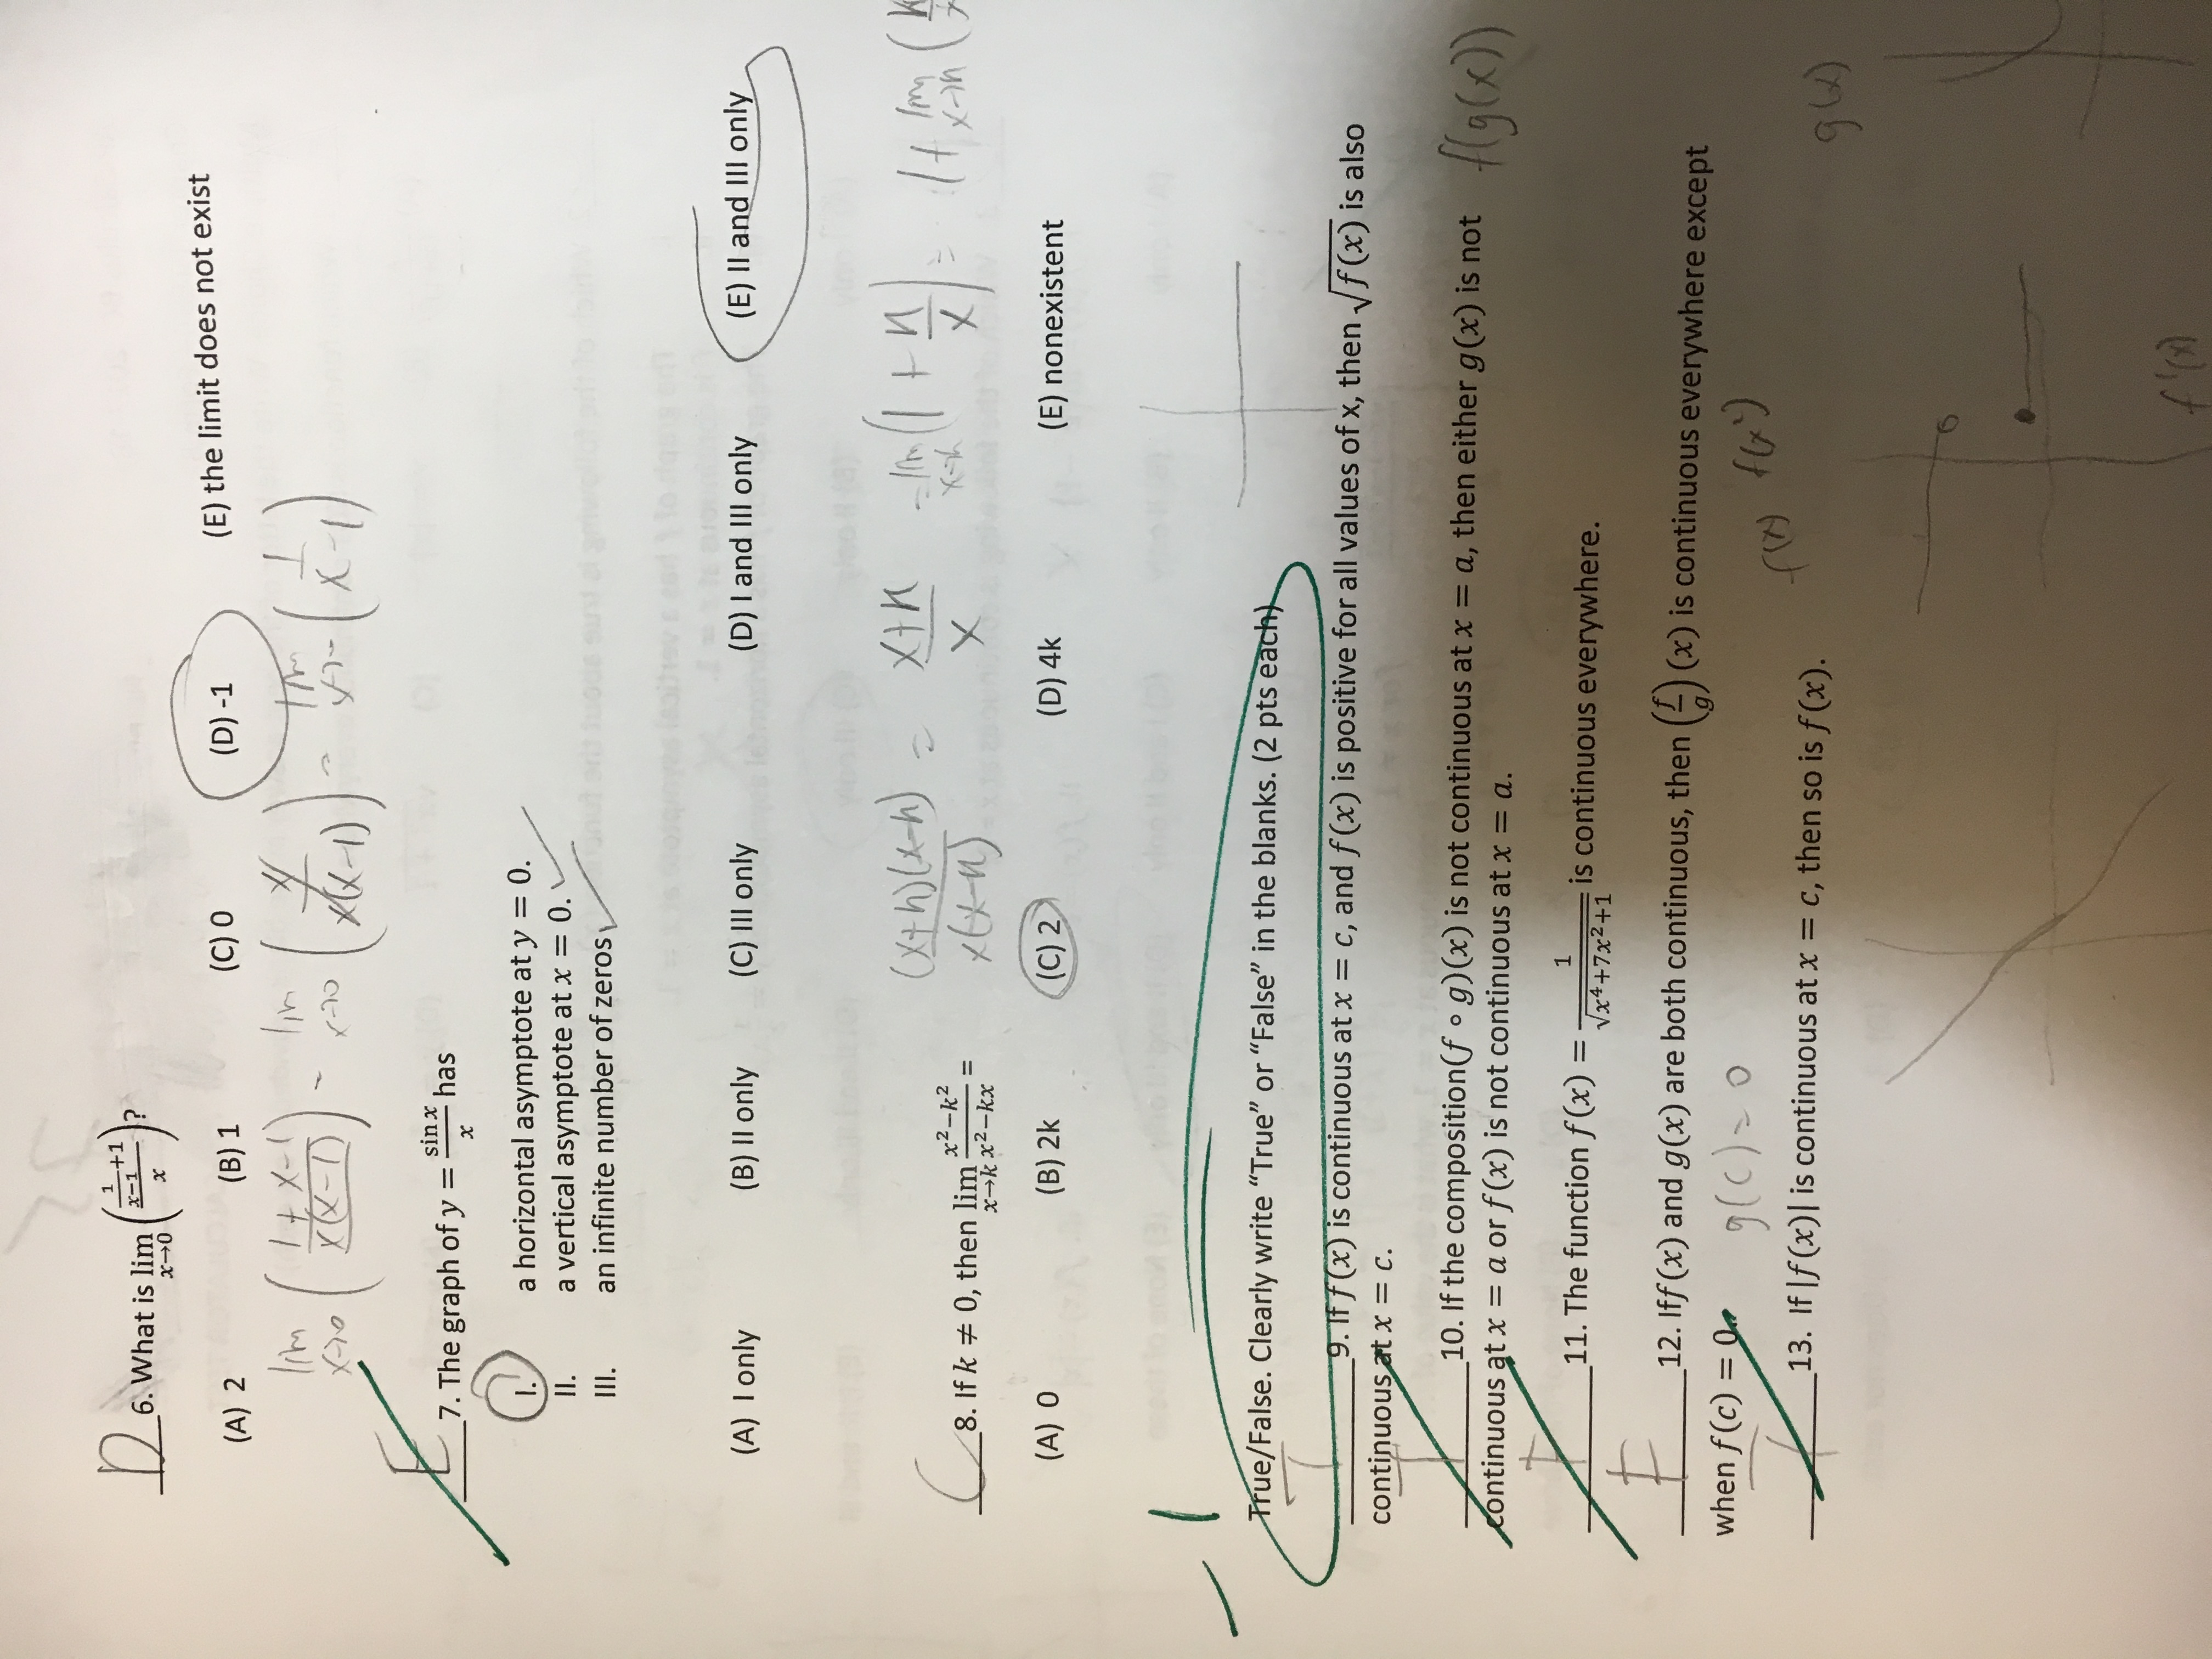 D 6. What is lim x→0 ((1/(x−1) +1)/x)?
(A) 2 (B) 1 (C) 0 (D) -1 (E) the limit does not exist
lim x→0 ((1+x−1)/(x(x−1))) = lim x→0 (x/(x(x−1))) = lim (1/(x−1))
E 7. The graph of y = sin x/x has
I. a horizontal asymptote at y = 0.
II. a vertical asymptote at x = 0. ✓
III. an infinite number of zeros ✓
(A) I only (B) II only (C) III only (D) I and III only (E) II and III only
(x+k)(x−k)/(x(x−k)) = (x+k)/x = lim x→k (1 + k/x) = 1 + lim x→k (k/x
C 8. If k ≠ 0, then lim x→k (x²−k²)/(x²−kx) =
(A) 0 (B) 2k (C) 2 (D) 4k (E) nonexistent
−1
True/False. Clearly write “True” or “False” in the blanks. (2 pts each)
T 9. If f(x) is continuous at x = c, and f(x) is positive for all values of x, then √f(x) is also
continuous at x = c.
T 10. If the composition(f ∘ g)(x) is not continuous at x = a, then either g(x) is not f(g(x))
continuous at x = a or f(x) is not continuous at x = a.
F 11. The function f(x) = 1/√(x⁴+7x²+1) is continuous everywhere.
F 12. Iff(x) and g(x) are both continuous, then (f/g)(x) is continuous everywhere except
when f(c) = 0. g(c) = 0
f(x) f(x²)
T 13. If |f(x)| is continuous at x = c, then so is f(x).
g(x)
f'(x)